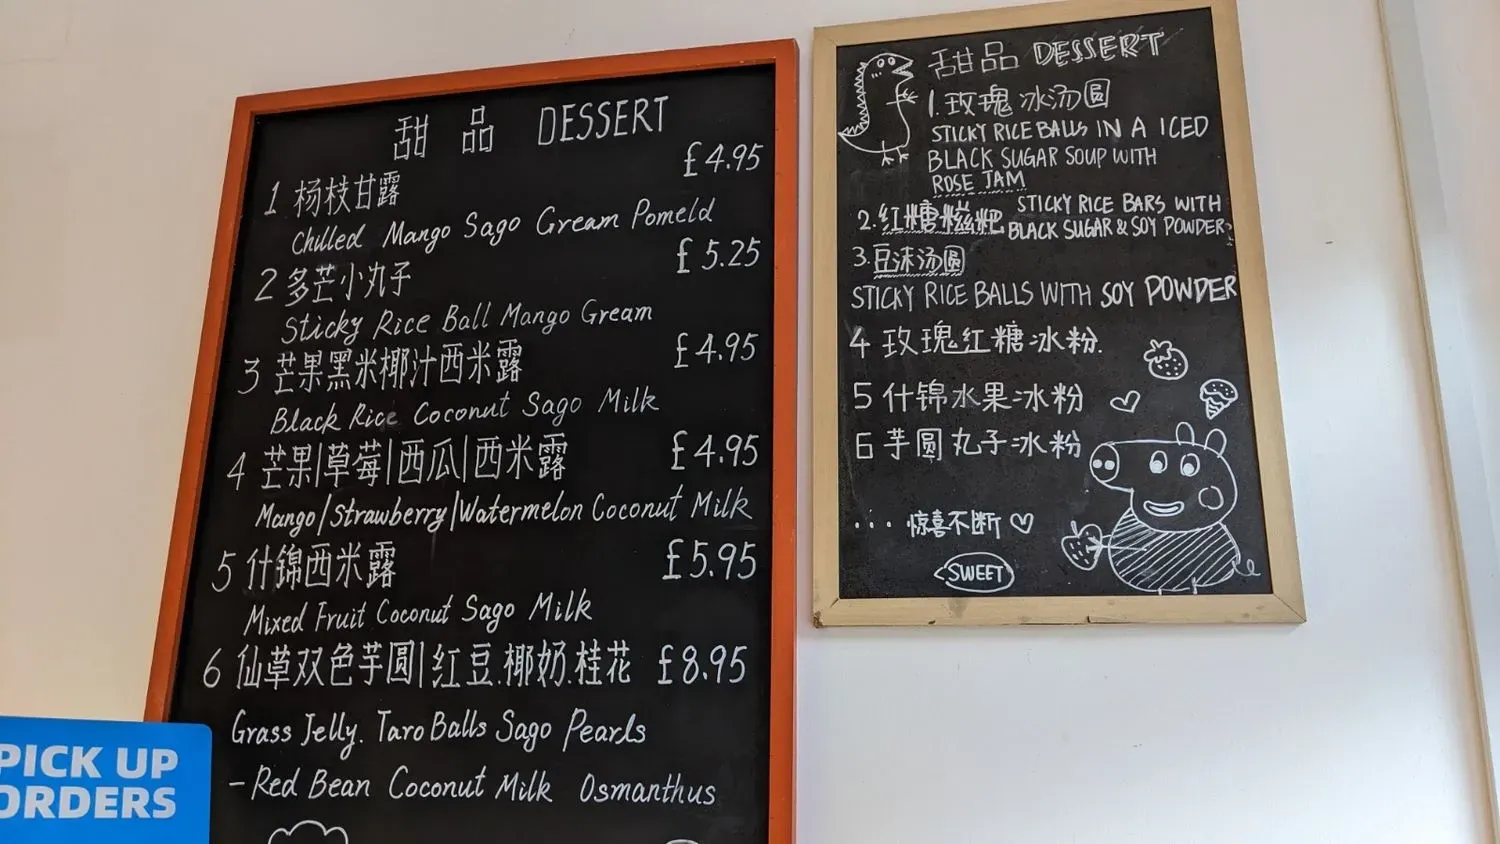 甜 品 DESSERT
£4.95
1 杨枝甘露
Chilled Mango Sago Gream Pomeld
£5.25
2 多芒小丸子
Sticky Rice Ball Mango Gream
£4.95
3 芒果黑米椰汁西米露
Black Rice Coconut Sago Milk
£4.95
4 芒果|草莓|西瓜|西米露
Mango/Strawberry/Watermelon Coconut Milk
5 什锦西米露 £5.95
Mixed Fruit Coconut Sago Milk
6 仙草双色芋圆|红豆.椰奶.桂花 £8.95
Grass Jelly. Taro Balls Sago Pearls
-Red Bean Coconut Milk Osmanthus
甜品 DESSERT
1.玫瑰冰汤圆
STICKY RICE BALLS IN A ICED
BLACK SUGAR SOUP WITH
ROSE JAM
2.红糖糍粑 STICKY RICE BARS WITH
BLACK SUGAR & SOY POWDER.
3.豆沫汤圆
STICKY RICE BALLS WITH SOY POWDER
4 玫瑰红糖冰粉.
5 什锦水果冰粉
6 芋圆丸子冰粉
... 惊喜不断♡
SWEET
PICK UP
ORDERS